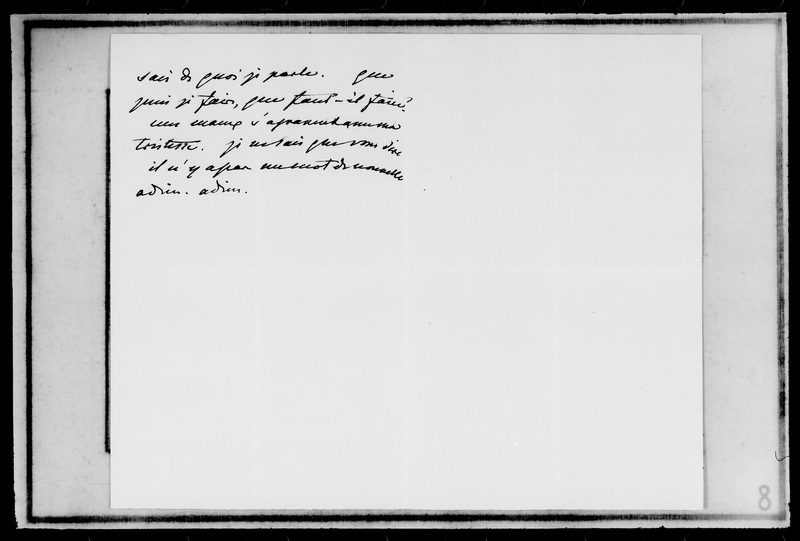 sais de quoi je parle. que
puis je faire, que faut-il faire?
mes maux s'agravent comme ma
tristesse. je ne sais que vous dire
il n'y a pas un mot de nouvelle
adieu. adieu.
8